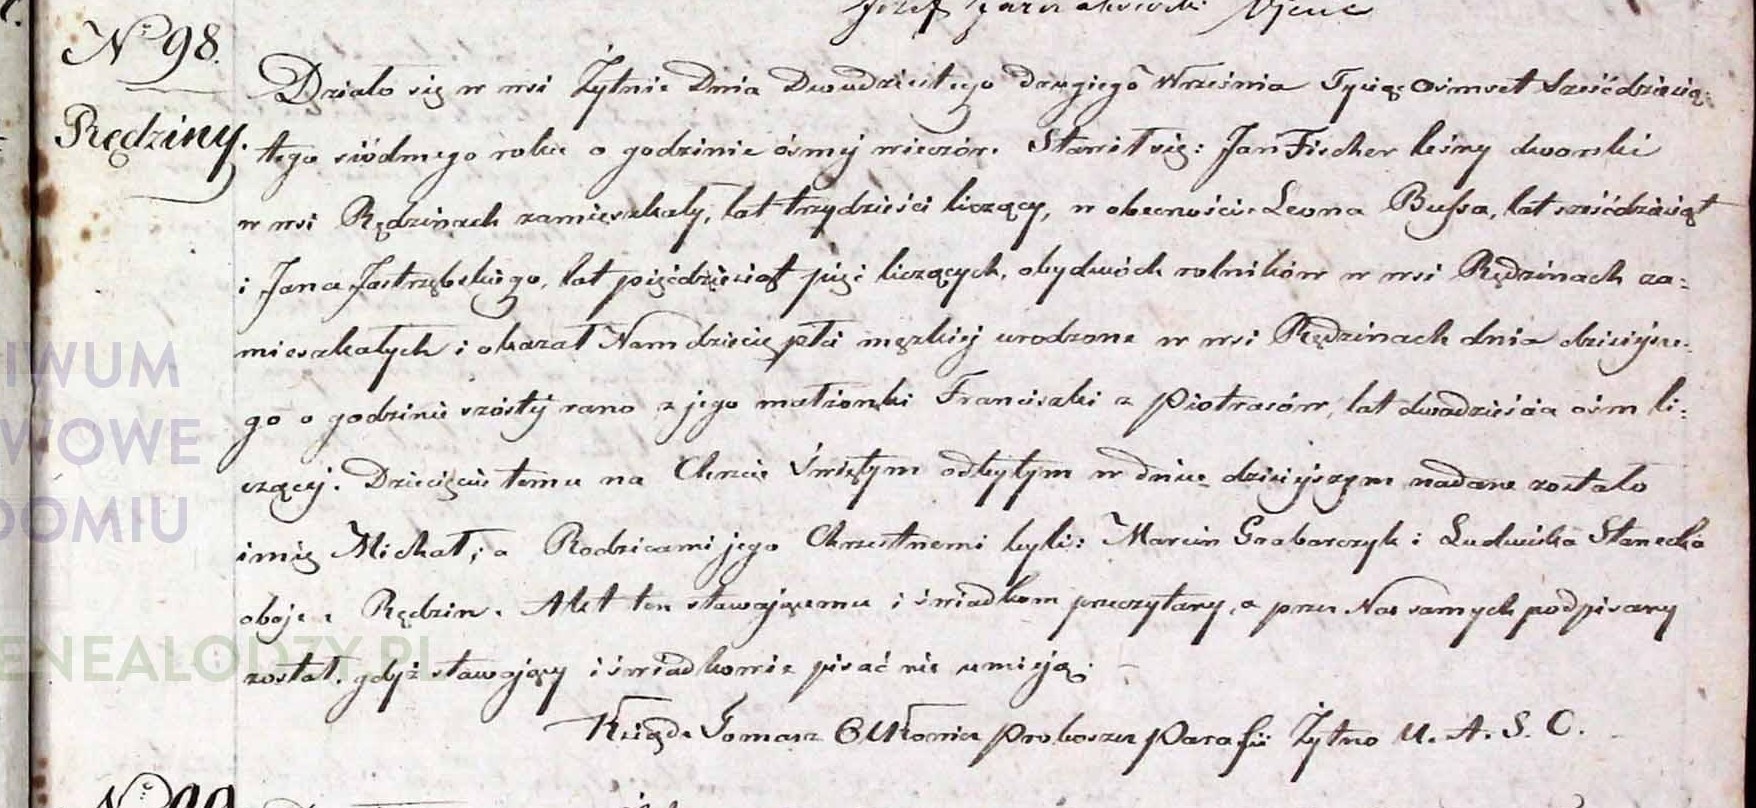 Józef Ojciec
No 98.
Rędziny.
Działo się w wsi Żytnie Dnia Dwudziestego drugiego Września Tysiąc Ośmset Sześćdziesią:
tego siódmego roku o godzinie ósmej wieczór. Stawił się: Jan Fischer leśny dworski
w wsi Rędzinach zamieszkały, lat trzydzieści liczący, w obecności Leona Bussa, lat sześćdziesiąt
i Jana Jastrzębskiego, lat pięćdziesiąt pięć liczących, obydwóch rolników w wsi Rędzinach za=
mieszkałych i okazał Nam dziecię płci męzkiej urodzone w wsi Rędzinach dnia dzisiejsze:
go o godzinie szóstej rano z jego małżonki Franciszki z Piotrasów, lat dwadzieścia ośm li:
czącej. Dziecięciu temu na Chrzcie Świętym odbytym w dniu dzisiejszym nadane zostało
imię Michał; a Rodzicami jego Chrzestnemi byli: Marcin Grabarczyk i Ludwika Stanecka
oboje z Rędzin. Akt ten stawającemu i świadkom przeczytany, a przez Nas samych podpisany
został, gdyż stawający i świadkowie pisać nie umieją. –
Ksiądz Tomasz Proboszcz Parafii Żytno U. A. S. C.
No 99
IWUM
WOWE
DOMIU
ENEALODZY.PL